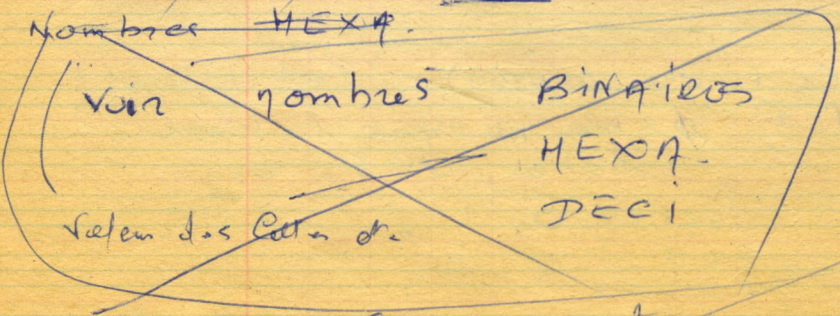 Nombres HEXA.
Voir nombres BINAIRES
HEXA.
DECI
Valeur des